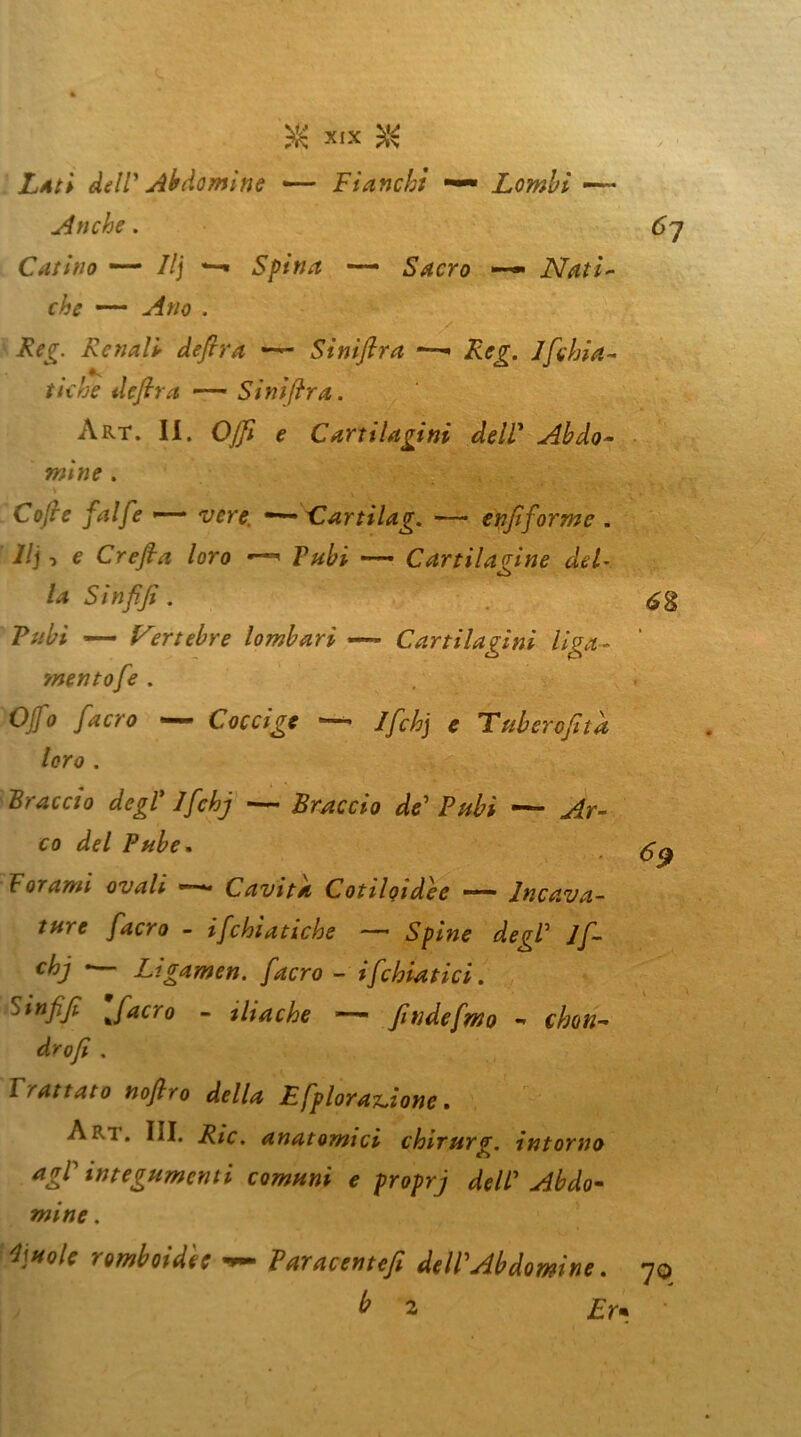 XIX
Lati dell' Abdomine — Fianchi — Lombi —
Anche. 67
Catino — Ilj — Spina — Sacro — Nati-
che — Ano .
Reg. Renali deſtra — Siniſtra — Reg. Iſchia-
tiche deſtra — Siniſtra.
ART. II. Oſſi e Cartilagini dell' Abdo-
mine .
Coſte falſe — vere — Cartilag. — enſiforme .
Ilj, e Creſta loro — Pubi — Cartilagine del-
la Sinfiſi . 68
Pubi — Vertebre lombari — Cartilagini liga-
mentoſe .
Oſſo ſacro — Coccige — Iſchj e Tuberoſità
loro .
Braccio degl' Iſchj — Braccio de' Pubi — Ar-
co del Pube. 69
Forami ovali — Cavità Cotiloidèe — Incava-
ture ſacro - iſchiatiche — Spine degl' Iſ-
chj — Ligamen. ſacro - iſchiatici.
Sinfiſi ſacro - iliache — ſindeſmo - chon-
droſi .
Trattato noſtro della Eſplorazione.
ART. III. Ric. anatomici chirurg. intorno
agl' integumenti comuni e proprj dell' Abdo-
mine.
Ajuole romboidèe — Paracenteſi dell' Abdomine. 70
b 2 Er-